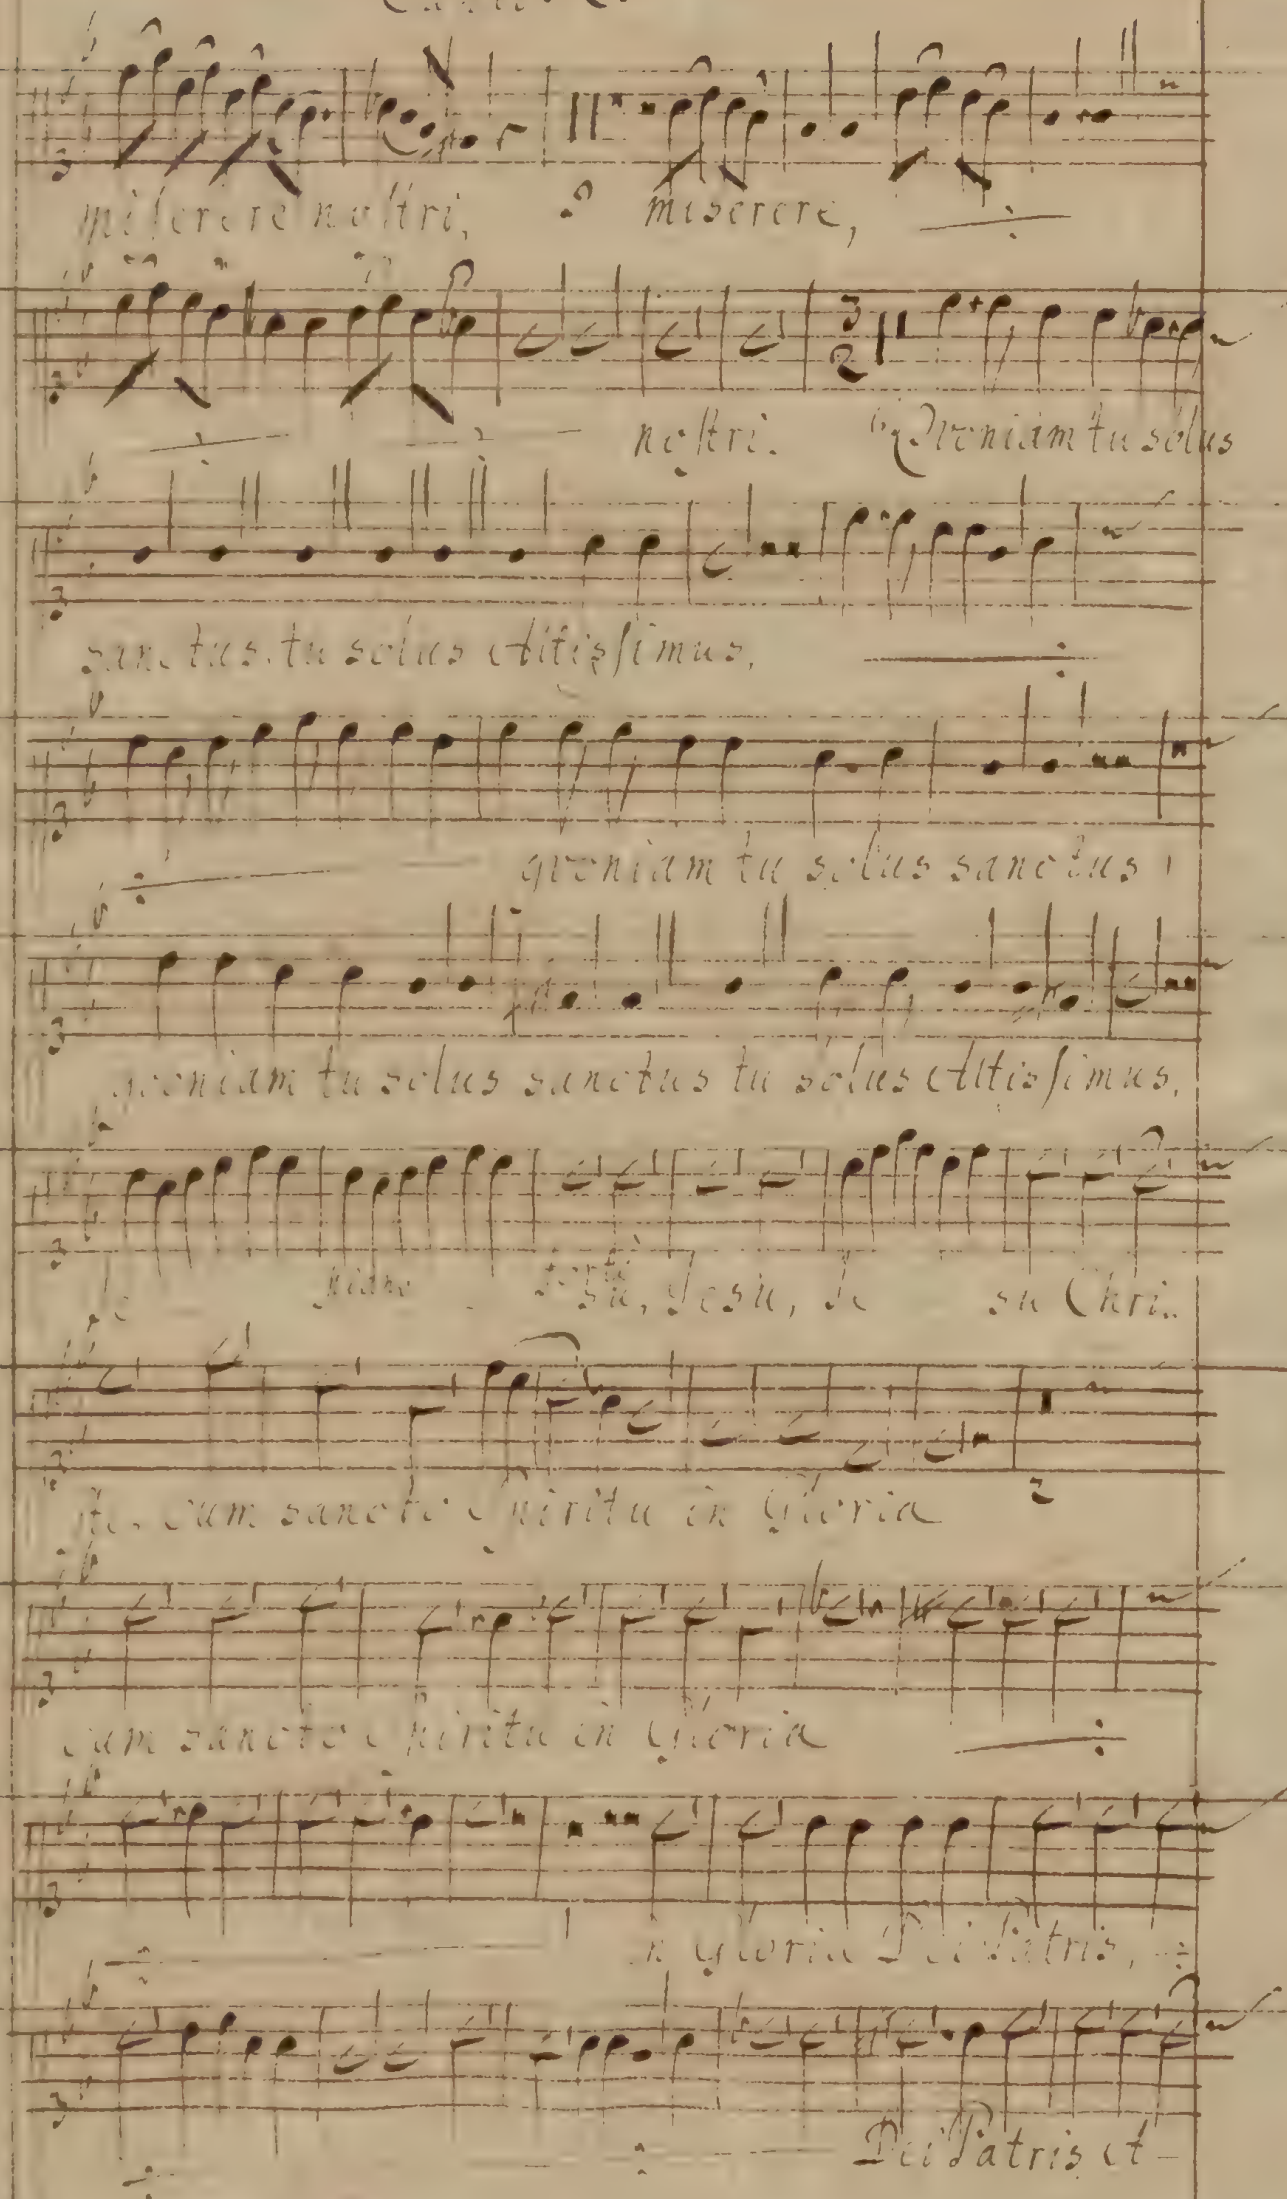 miserere nostri, miserere,
nostri. Qvoniam tu solus
sanctus. tu solus Altissimus.
qvoniam tu solus sanctus
qvoniam tu solus sanctus tu solus Altissimus.
Je piano su, Jesu, Je su Chri..
ste. cum sancto Spiritu in Gloria
2
cum sancto Spiritu in Gloria
in Gloria Dei Patris,
Dei Patris et